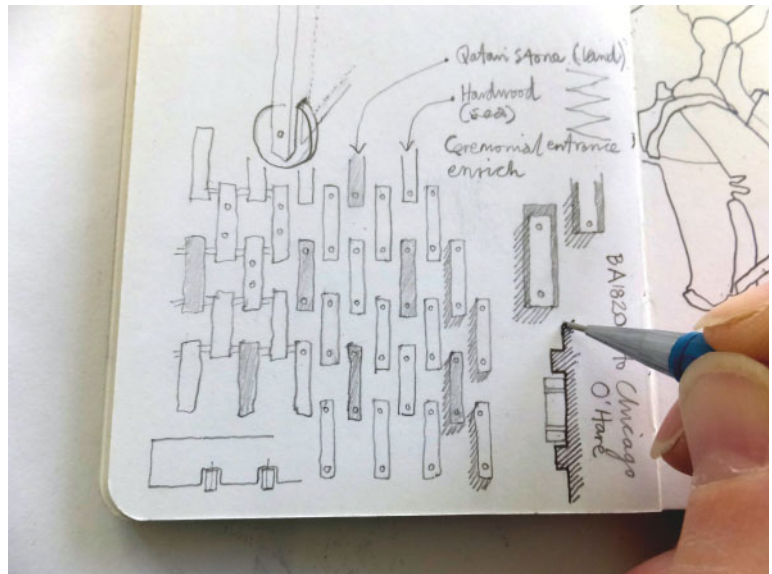 Qatari stone (land)
Hardwood
(sea)
Ceremonial entrance
enrich
BA1820 to Chicago
O'Hare